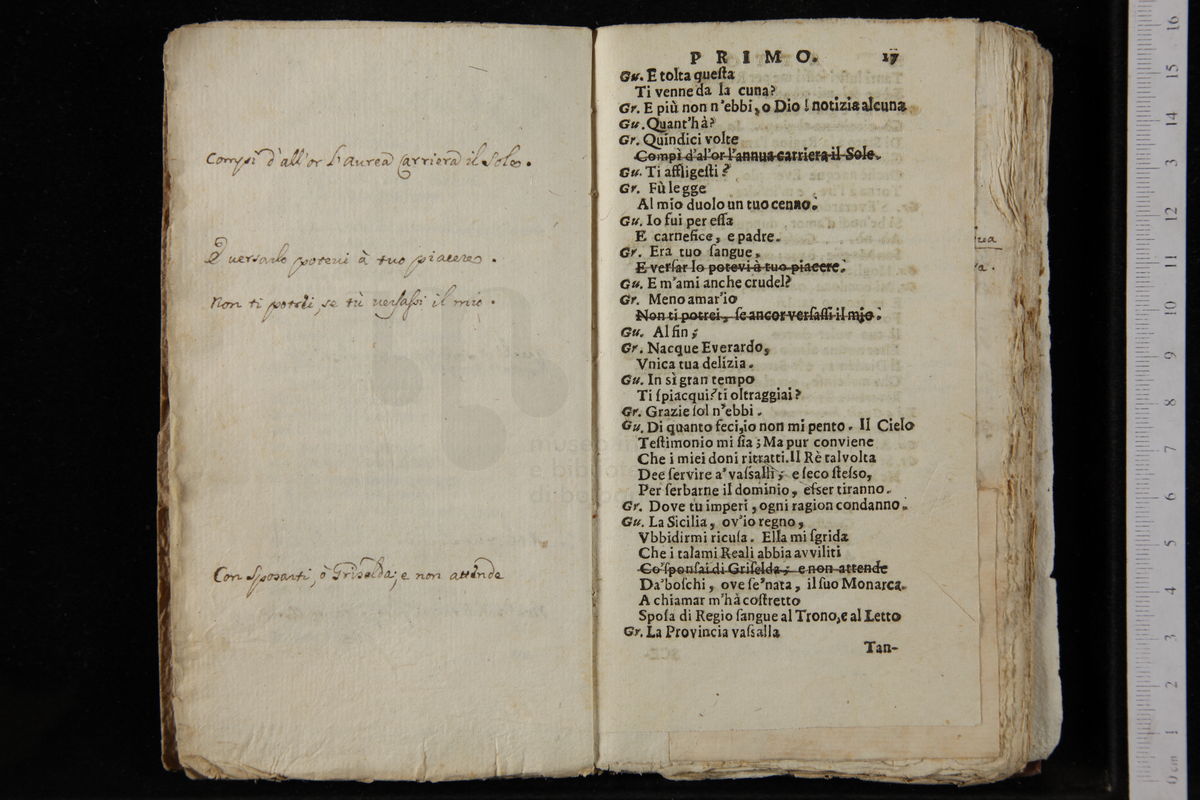 Compì d'all'or L'Aurea Carriera il Sole.
E versarlo potevi à tuo piacere.
Non ti potrei, se tù versassi il mio.
Con Sposarti, ò Griselda; e non attende
PRIMO. 17
Gu. E tolta queſta
Ti venne da la cuna?
Gr. E più non n'ebbi, o Dio! notizia alcuna
Gu. Quant'hà?
Gr. Quindici volte
Compì d'al'or l'annua carriera il Sole.
Gu. Ti affligeſti?
Gr. Fù legge
Al mio duolo un tuo cenno.
Gu. Io fui per eſſa
E carnefice, e padre.
Gr. Era tuo ſangue.
E verſar lo potevi à tuo piacere.
Gu. E m'ami anche crudel?
Gr. Meno amar'io
Non ti potrei, ſe ancor verſaſſi il mio.
Gu. Al fin;
Gr. Nacque Everardo,
Vnica tua delizia.
Gu. In sì gran tempo
Ti ſpiacqui? ti oltraggiai?
Gr. Grazie ſol n'ebbi.
Gu. Di quanto feci, io non mi pento. Il Cielo
Teſtimonio mi ſia; Ma pur conviene
Che i miei doni ritratti. Il Rè talvolta
Dee ſervire a' vaſsalli; e ſeco ſteſso,
Per ſerbarne il dominio, eſser tiranno.
Gr. Dove tu imperi, ogni ragion condanno.
Gu. La Sicilia, ov'io regno,
Vbbidirmi ricuſa. Ella mi ſgrida
Che i talami Reali abbia avviliti
Co'ſponſai di Griſelda; e non attende
Da'boſchi, ove ſe'nata, il ſuo Monarca.
A chiamar m'hà coſtretto
Spoſa di Regio ſangue al Trono, e al Letto
Gr. La Provincia vaſsalla
Tan-